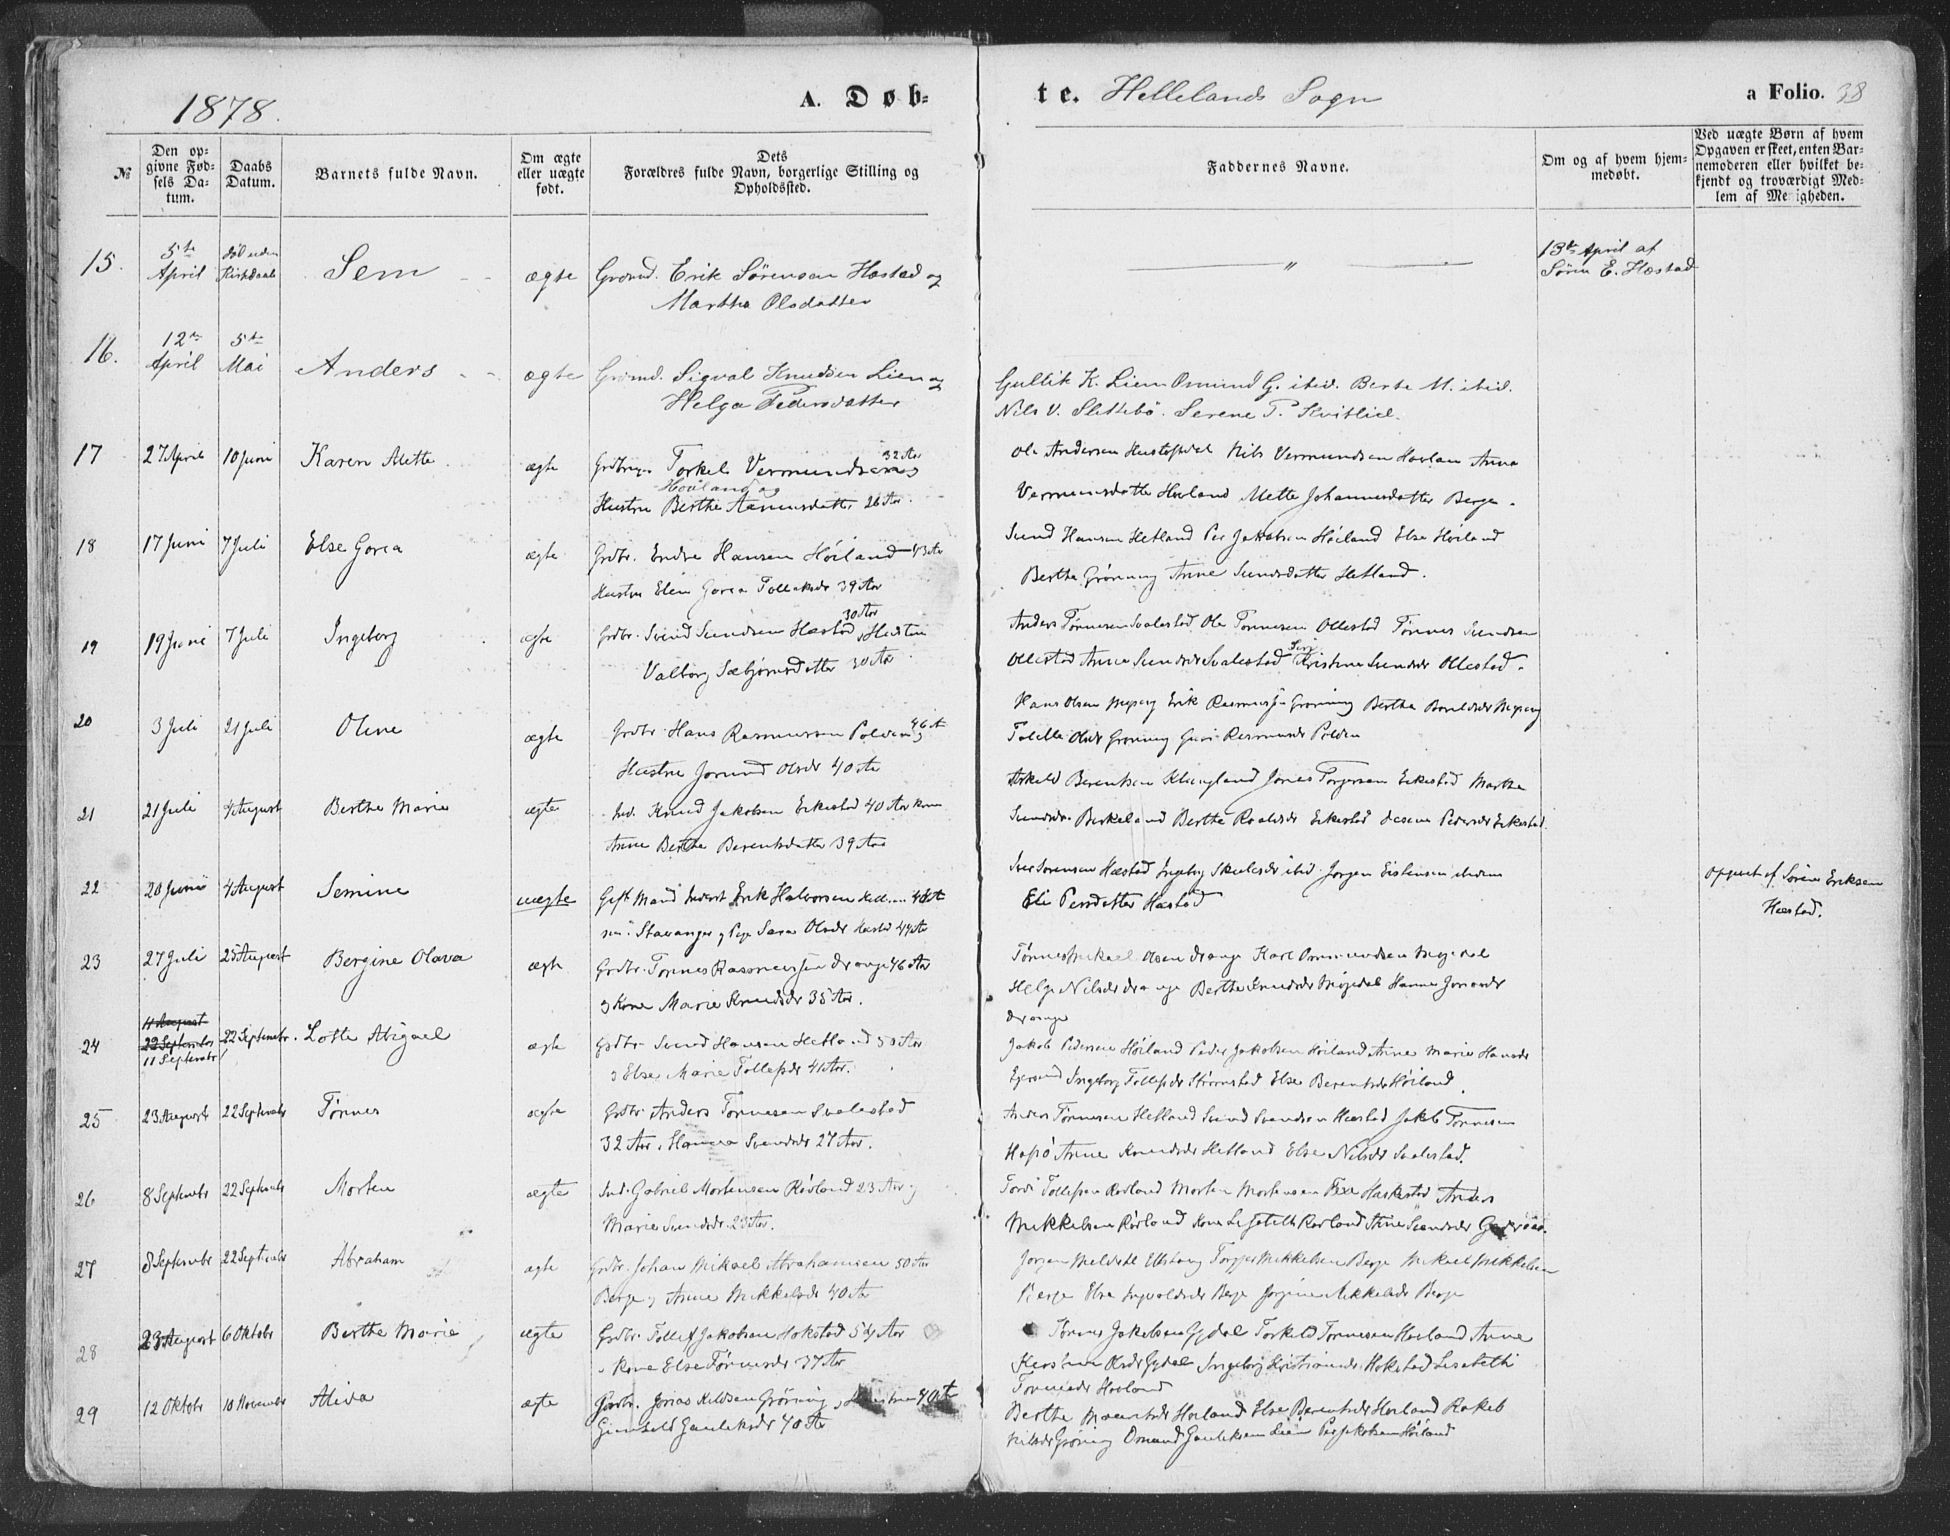 1878.
A. Døb-
te. Hellelands Sogn
a Folio. 38
№
Den op-
givne Fød-
sels Da-
tum.
Daabs
Datum.
Barnets fulde Navn.
Om ægte
eller uægte
født.
Dets
Forældres fulde Navn, borgerlige Stilling og
Opholdssted.
Faddernes Navne.
Om og af hvem hjem-
medøbt.
Ved uægte Børn af hvem
Opgaven er skeet, enten Bar-
nemoderen eller hvilket be-
kjendt og troværdigt Med-
lem af Menigheden.
15. 5te April død uden Kirkedaab Sem ægte Grdmd. Erik Sørensen Hæstad og
Martha Olsdatter
13de April af
Søren E. Hæstad
16. 12te April 5te Mai Anders ægte Grdmd. Sigval Knudsen Lien og
Helga Pedersdatter
Gullik K. Lien Osmund G. ibid. Berte M. ibid.
Nils V. Slettebø. Serene P. Kvitliel.
17 27 April 10 Juni Karen Mette ægte Torkel Vermundsen 32 Aar
Hovland og
Hustru Berthe 26 Aar
Ole Andersen Nils Vermundsen Hovland Anna
Hovland Mette Johannesdatter Berge.
18 17 Juni 7 Juli Else Gorea ægte Grdbr. Endre Hansen Høiland 43 Aar
Hustru Elen Gorea 39 Aar
Svend Hansen Hetland Per Jakobsen Høiland Else Høiland
Bertha Grøning Anne Svendsdatter Hetland.
19 19 Juni 7 Juli Ingeborg ægte Grdbr. Svend Svendsen Hæstad 30 Aar Hustru
Valborg Sæbjørnsdatter 30 Aar
Anders Tønnesen Svalestad Ole Tønnesen Ollestad Tønnes Svendsen
Ollestad Anne Svendsdr Svalestad Kristine Svendsdr Ollestad.
20 3 Juli 21 Juli Oline ægte Grdbr. Hans Rasmussen Polden 46 Aar
Hustru Jorund Olsdr 40 Aar
Hans Olsen Erik Grøning Bertha
Olsdr Grøning Guri Rasmusdr Polden
21 21 Juli 4 August Berthe Marie ægte Ind. Knud Jakobsen Eikestad 40 Aar Kone
Anne Berthe Berentsdatter 39 Aar
Berentsen Klungland Jonas Torgersen Eikestad Martha
Svendsdr. Birkeland Berthe Eikestad Pedersdr Eikestad
22 20 Juni 4 August Semine uægte Gift Mand Erik Halvorsen
Stavanger og Pige Sara Olsdr Hæstad 44 Aar
Sørensen Hæstad Ingeborg ibid. Jørgen
Eli Persdatter Hæstad
opgivet af Søren Eriksen
Hæstad.
23 27 Juli 25 August Bergine Olava ægte Grdbr. Tønnes Rasmussen Drange 46 Aar
og Kone Marie Knudsdr 35 Aar.
Tønnes Mikael Olsen Drange Karl Ommundsen Møgedal
Helge Nilsdr Drange Berthe Knudsdr Møgedal Hanne
Drange
24 11 August 22 September 11 September 22 September Lotte Abigael ægte Grdbr. Svend Hansen Hetland 50 Aar
og Else Marie Tollefsdr 41 Aar.
Jakob Pedersen Høiland Peder Jakobsen Høiland Anne Marie Hansdr
Egersund Ingeborg Tollefsdr Strømstad Else Berentsdr Høiland
25 23 August 22 Septembr Tønnes ægte Grdbr Anders Tønnesen Svalestad
32 Aar. Hanna Svendsdr 27 Aar.
Anders Tønnesen Hetland Svend Svendsen Hæstad Jakob Tønnesen
Anne Knudsdr Hetland Else Nilsdr Svalestad.
26 8 Septembr 22 Septembr Morten ægte Ind. Gabriel Mortensen Røvland 23 Aar og
Marie Svendsdr. 23 Aar.
Tollefsen Røvland Morten Mortensen Anders
Mikkelsen Røvland Kone Lisabeth Røvland Anne Svendsdr
27 8 Septembr 22 Septembr Abraham ægte Grdbr. Johan Mikael Abrahamsen 50 Aar
Berge og Anne Mikkelsdr 40 Aar
Jørgen Mikkelsen Berge Mikael Mikkelsen
Berge Else Ingvaldsdr Berge Jørgine Mikkelsdr Berge
28 23 August 6 Oktobr Berthe Marie ægte Grdbr. Tollef Jakobsen Hokstad 54 Aar
Kone Else Tønnesdr 37 Aar
Tønnes Jakobsen Gydal Torkel Tønnesen Hovland Anne
Kirstine Olsdr Gydal Ingeborg Kristiansdr Hokstad Lisabeth
Tønnesdr Hovland
29 12 Oktobr 10 Novembr Alida ægte Grdbr. Jonas Kildsen Grøning og Hustru 40 Aar
Gunhild Gauleksdr 40 Aar
Berthe Hovland Else Berentsdr Hovland Rakel
Nilsdr Grøning Osmund Gauleksen Lien Per Jakobsen Høiland